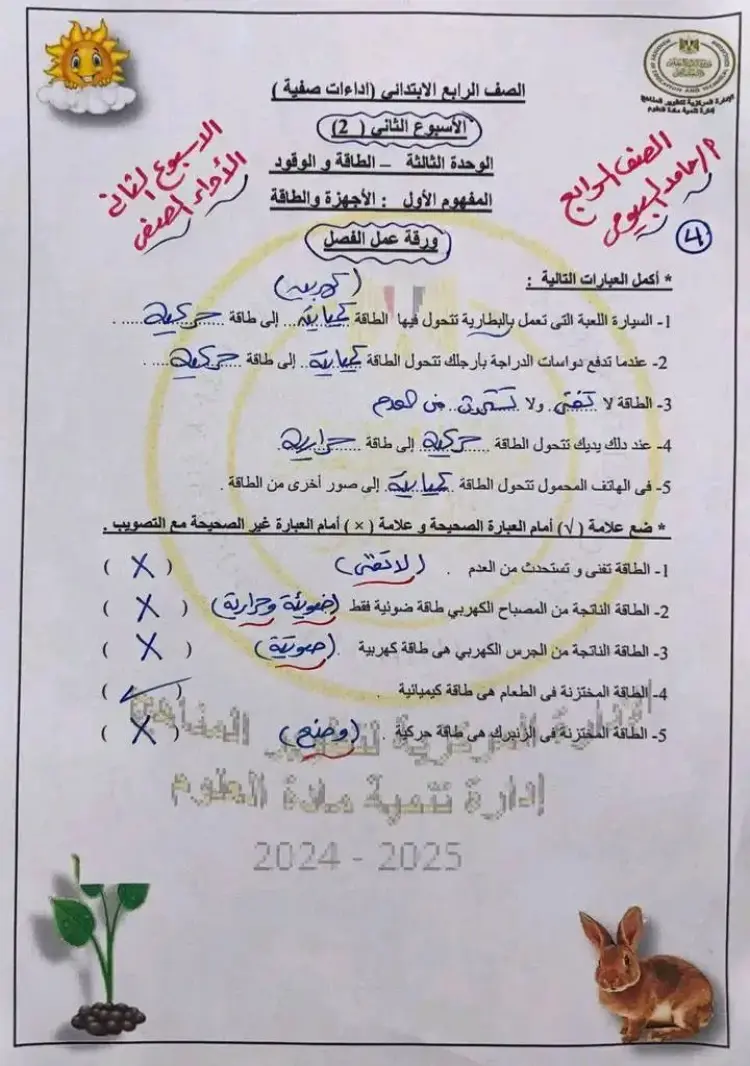 الإدارة المركزية لتطوير المناهج
إدارة تنمية مادة العلوم
الصف الرابع الابتدائي (اداءات صفية )
الأسبوع الثاني ( 2)
الوحدة الثالثة – الطاقة و الوقود
المفهوم الأول : الأجهزة والطاقة
ورقة عمل الفصل
الاسبوع الثانى
الأداء الصفى
الصف الرابع
م/ حامد البيومى
4
* أكمل العبارات التالية :
(كهربية)
1- السيارة اللعبة التى تعمل بالبطارية تتحول فيها الطاقة كيميائية إلى طاقة حركية
2- عندما تدفع دواسات الدراجة بأرجلك تتحول الطاقة كيميائية إلى طاقة حركية
3- الطاقة لا تفنى ولا تستحدث من العدم
4- عند دلك يديك تتحول الطاقة حركية إلى طاقة حرارية
5- فى الهاتف المحمول تتحول الطاقة كيميائية إلى صور أخرى من الطاقة .
* ضع علامة (√) أمام العبارة الصحيحة و علامة (×) أمام العبارة غير الصحيحة مع التصويب .
1- الطاقة تفنى و تستحدث من العدم . (لا تفنى) ( X )
2- الطاقة الناتجة من المصباح الكهربي طاقة ضوئية فقط (ضوئية وحرارية) ( X )
3- الطاقة الناتجة من الجرس الكهربي هى طاقة كهربية . (صوتية) ( X )
4- الطاقة المختزنة فى الطعام هى طاقة كيميائية . ( ✓ )
5- الطاقة المختزنة فى الزنبرك هى طاقة حركية . (وضع) ( X )
الإدارة المركزية لتطوير المناهج
إدارة تنمية مادة العلوم
2024 - 2025